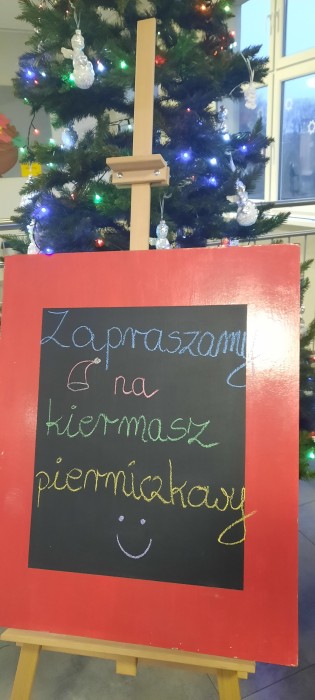 Zapraszamy
na
kiermasz
pierniczkowy